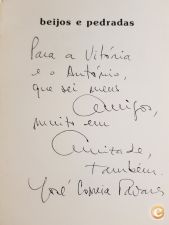 beijos e pedradas
Para a Vitória
e o António,
que sei meus
Amigos,
muito em
Amizade,
também.
José Correia Tavares